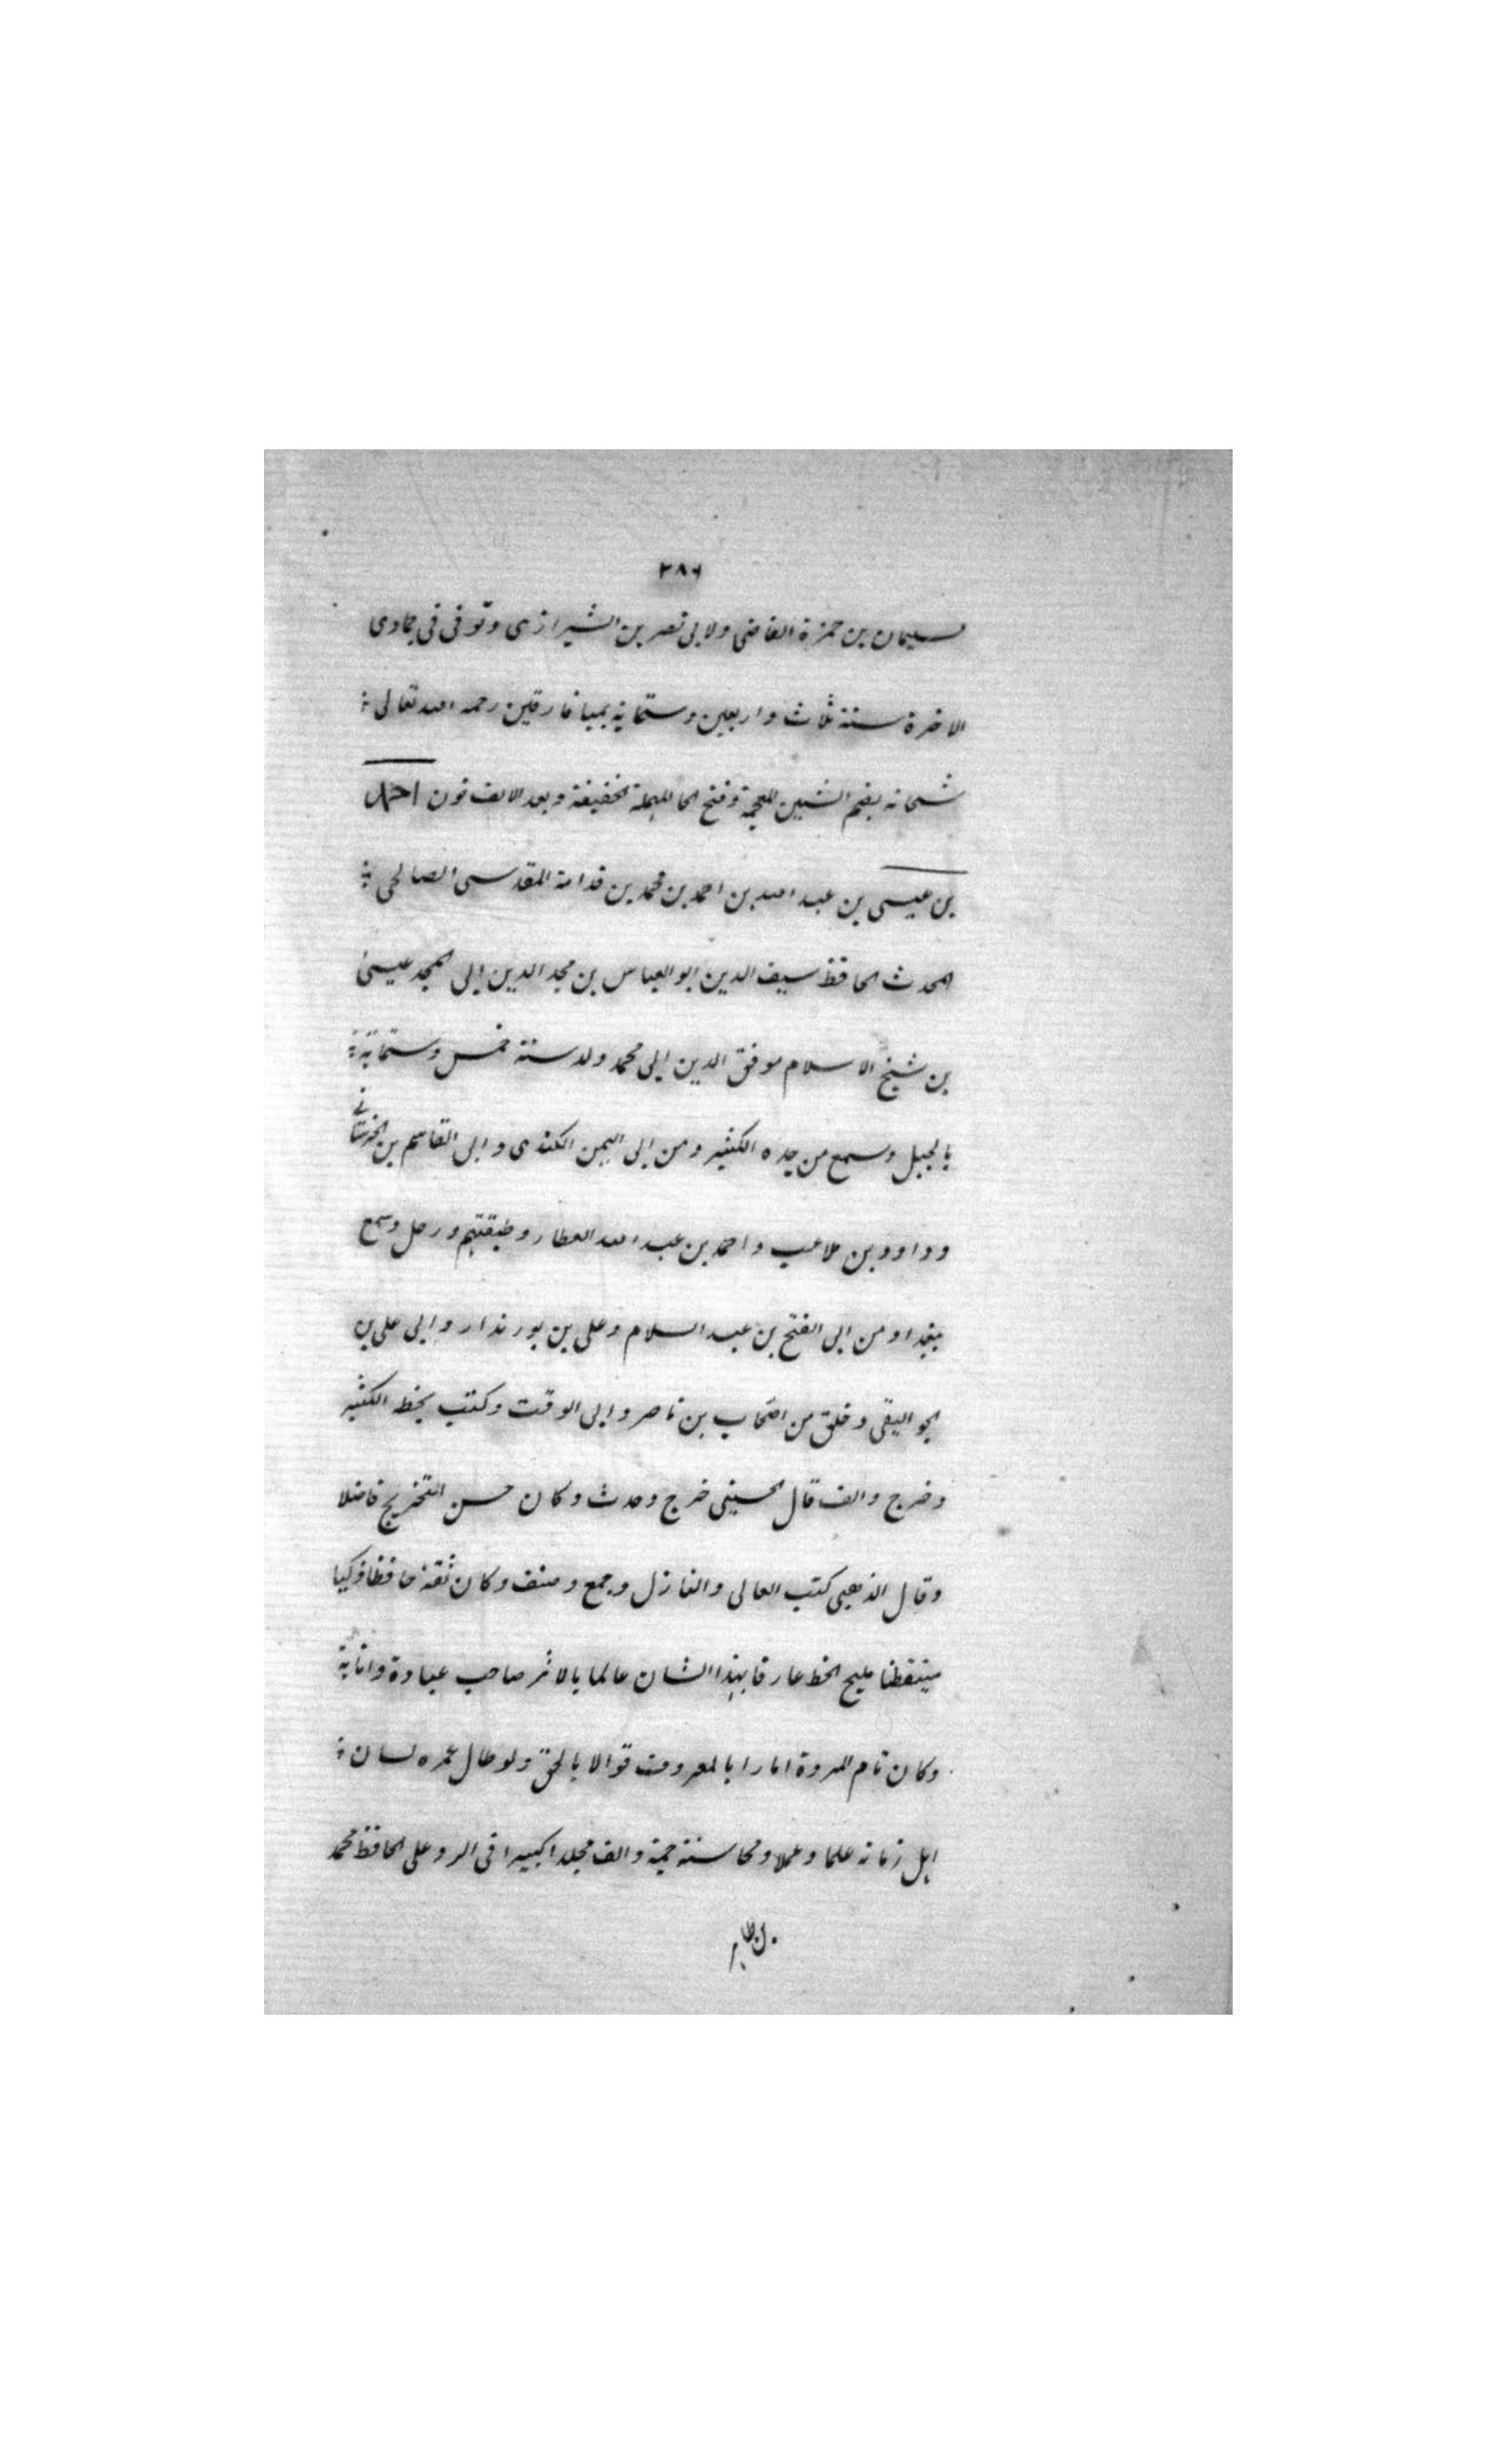 ٣٨٦
سليمان بن حمزة القاضى ولابى نصر بن الشيرازى وتوفى فى جمادى
الاخرة سنة ثلاث واربعين وستماية بميافارقين رحمه الله تعالى
شحانه بضم الشين المعجمة وفتح الحا المهملة الخفيفة وبعد الالف نون احمد
بن عيسى بن عبد الله بن احمد بن محمد بن قدامة المقدسى الصالحى
المحدث الحافظ سيف الدين ابو العباس بن مجد الدين ابى المجد عيسى
بن شيخ الاسلام موفق الدين ابى محمد ولد سنة خمس وستماية
بالجبل وسمع من جده الكثير ومن ابى اليمن الكندى وابى القاسم بن الحرستانى
وداود بن ملاعب واحمد بن عبد الله العطار وطبقتهم ورحل وسمع
ببغداد من ابى الفتح بن عبد السلام وعلى بن بورندار وابى على بن
الجواليقى وخلق من اصحاب بن ناصر وابى الوقت وكتب بخط الكثير
وخرج والف قال الحسينى خرج وحدث وكان حسن التخريج فاضلا
وقال الذهبى كتب العالى والنازل وجمع وصنف وكان ثقة حافظا ذكيا
متيقظا مليح الخط عارفا بهذا الشان عالما بالاثر صاحب عبادة وانابة
وكان تام المروة امارا بالمعروف قوالا بالحق ولو طال عمره لسان
اهل زمانه علما وعملا ومحاسنة جمة والف مجلدا كبيرا فى الرد على الحافظ محمد